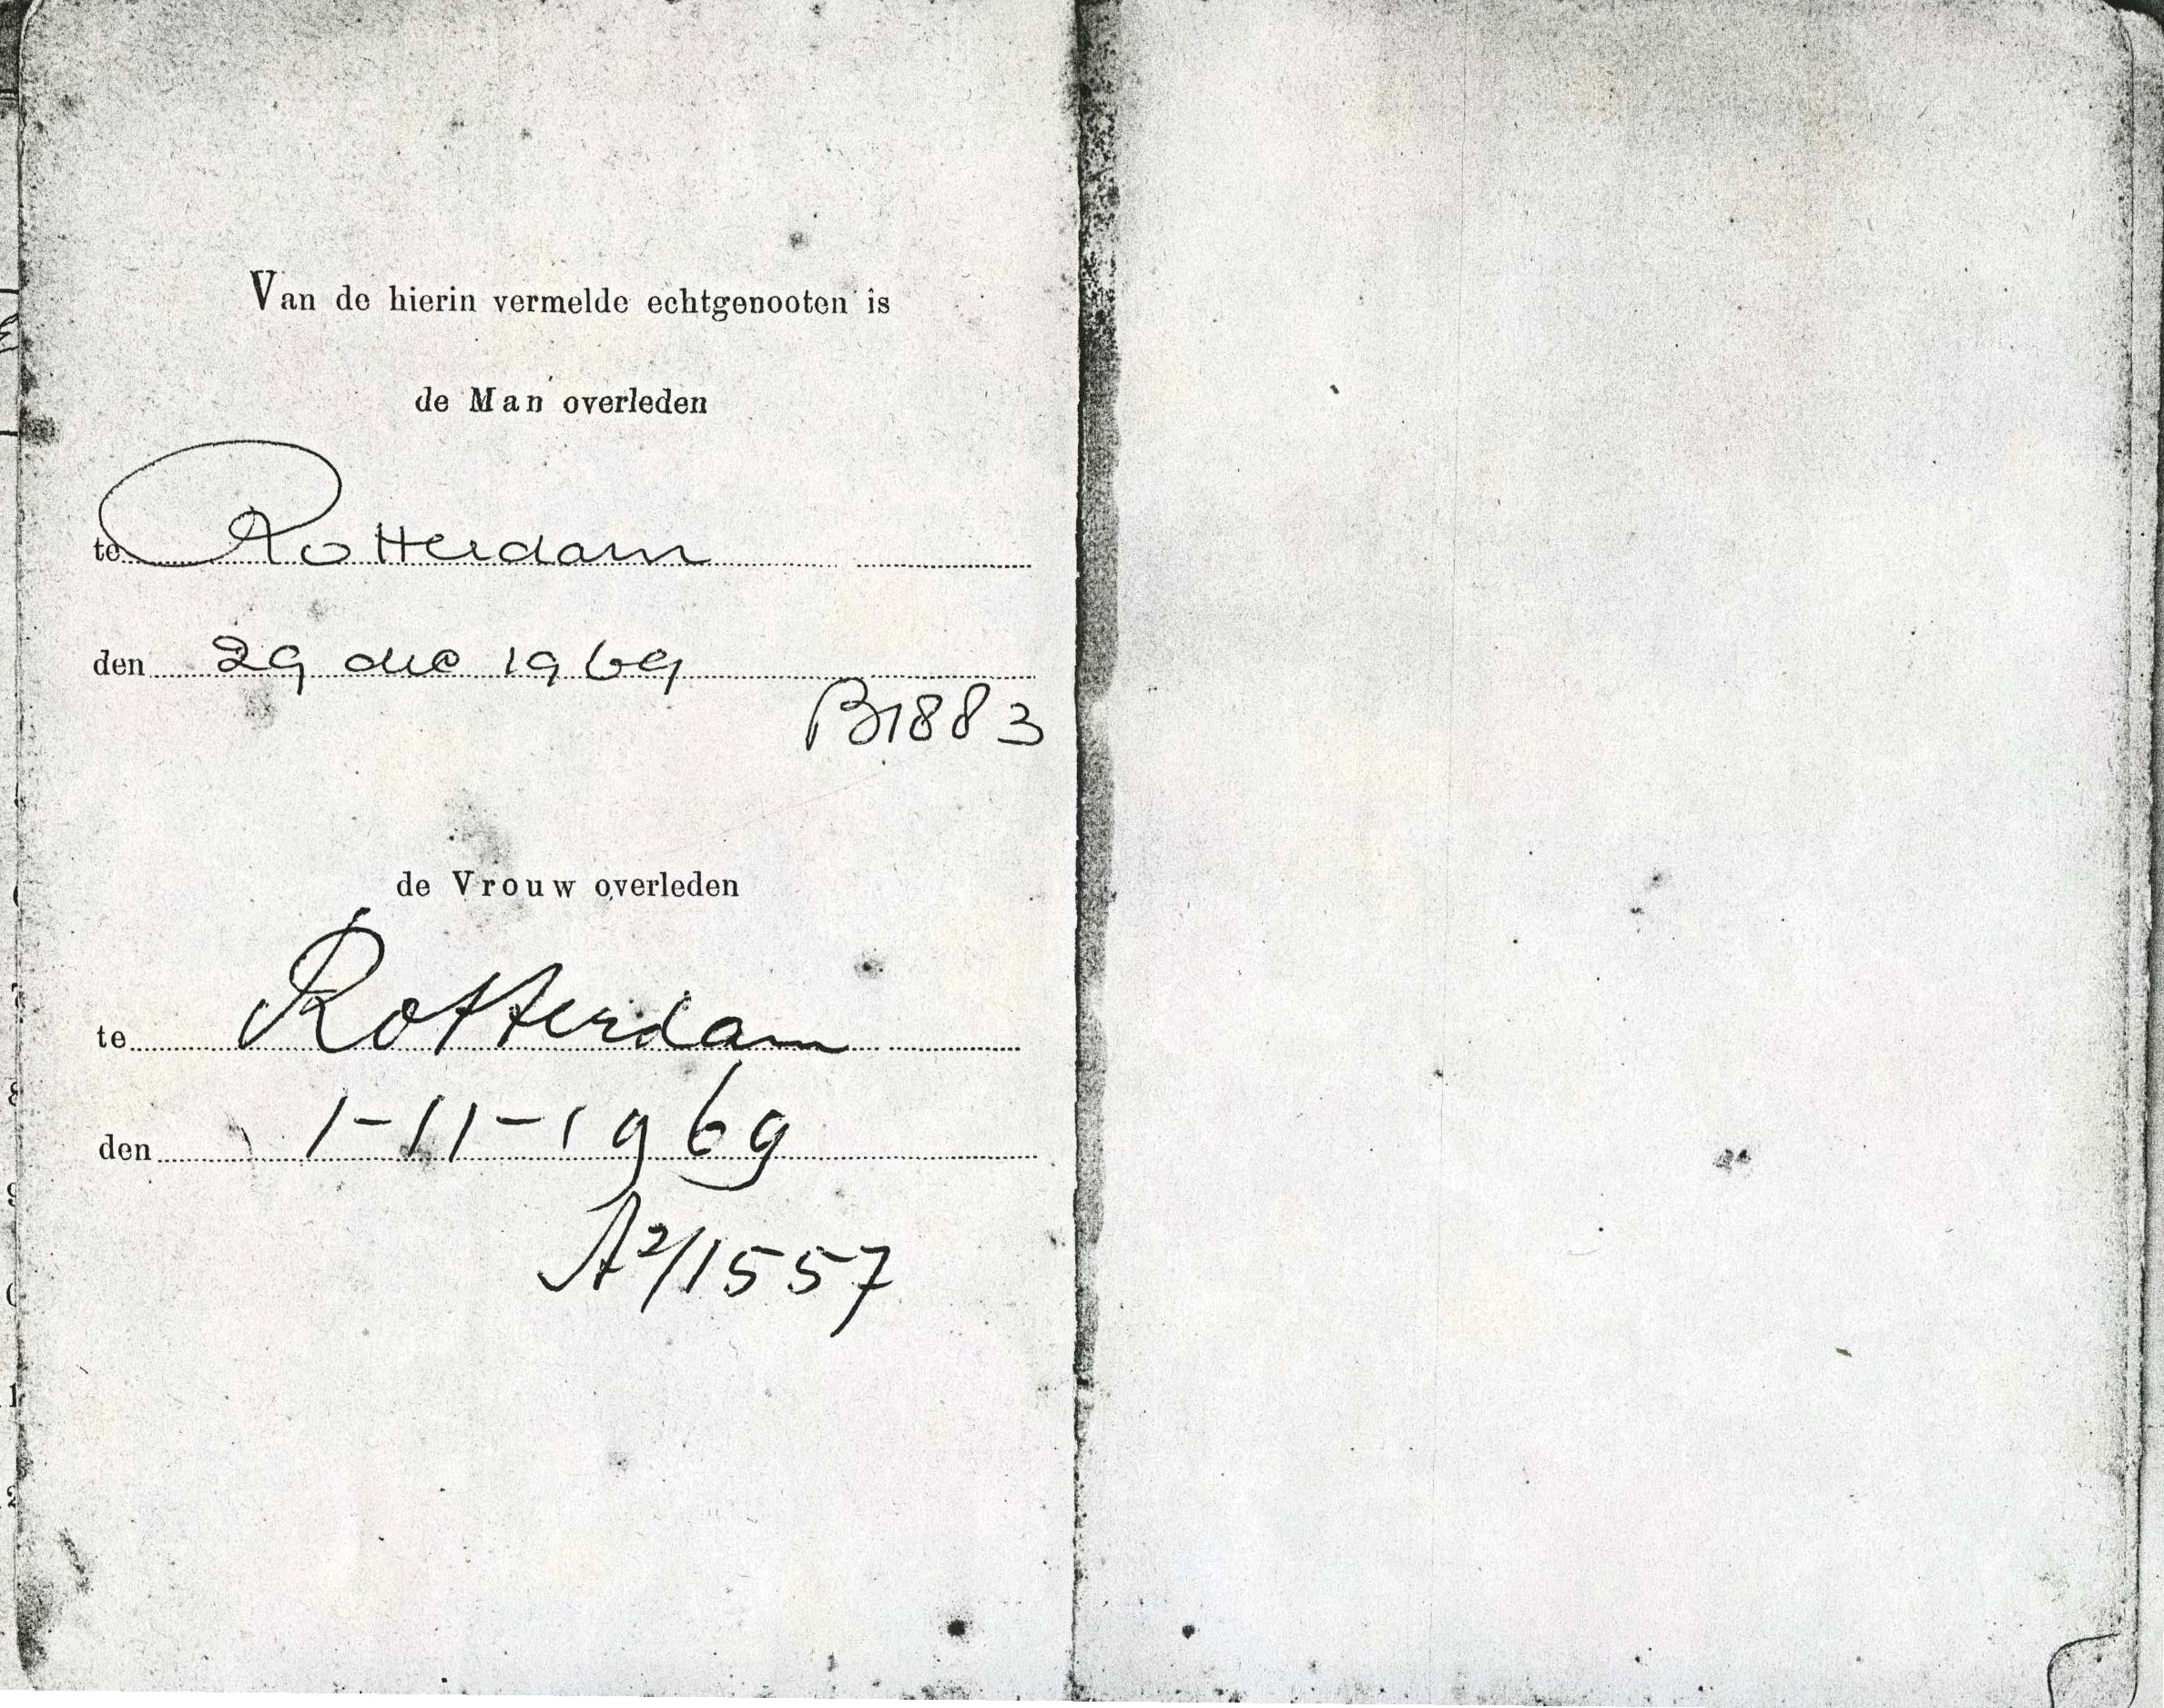 Van de hierin vermelde echtgenooten is
de Man overleden
te Rotterdam
den 29 dec 1969
B1883
de Vrouw overleden
te Rotterdam
den 1-11-1969
A2/1557